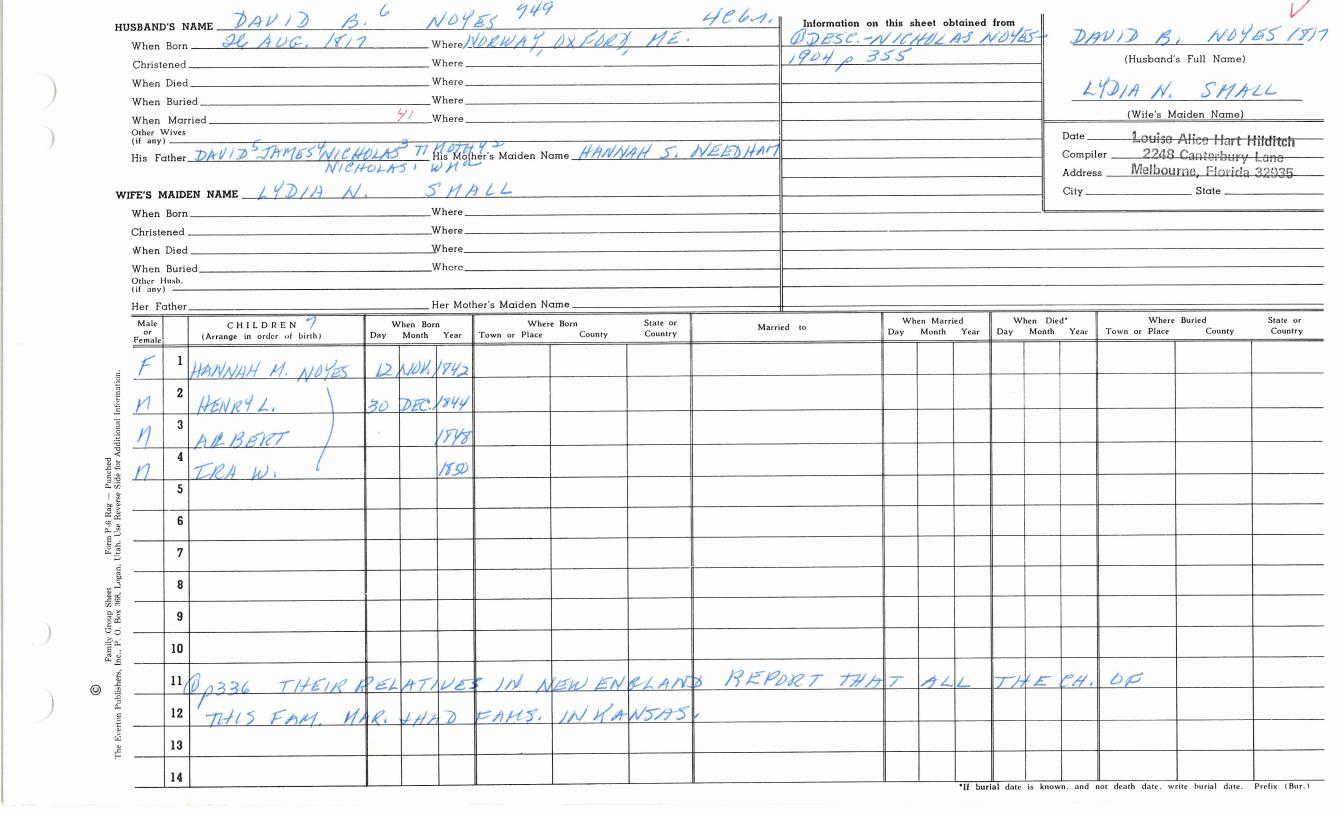 HUSBAND'S NAME DAVID B. 6 NOYES 949 4 Ch.
When Born 26 AUG. 1817 Where NORWAY, OXFORD, ME.
Christened Where
When Died Where
When Buried Where
When Married 41 Where
Other Wives
(if any)
His Father DAVID 5 JAMES 4 NICHOLAS 3 TIMOTHY 2 His Mother's Maiden Name HANNAH S. NEEDHAM
NICHOLAS 1 WM a
WIFE'S MAIDEN NAME LYDIA N. SMALL
When Born Where
Christened Where
When Died Where
When Buried Where
Other Husb.
(if any)
Her Father Her Mother's Maiden Name
Information on this sheet obtained from
① DESC.-NICHOLAS NOYES-
1904 p 355
DAVID B. NOYES 1817
(Husband's Full Name)
LYDIA N. SMALL
(Wife's Maiden Name)
Date
Compiler
Address
City State
Louise Alice Hart Hilditch
2248 Canterbury Lane
Melbourne, Florida 32935
Male or Female
CHILDREN 7
(Arrange in order of birth)
When Born
Day Month Year
Where Born
Town or Place County State or Country
Married to
When Married
Day Month Year
When Died*
Day Month Year
Where Buried
Town or Place County State or Country
F 1 HANNAH M. NOYES 12 NOV. 1842
M 2 HENRY L. 30 DEC. 1844
M 3 ALBERT 1848
M 4 IRA W. 1850
5
6
7
8
9
10
11 ① p336 THEIR RELATIVES IN NEW ENGLAND REPORT THAT ALL THE CH. OF
12 THIS FAM. MAR. & HAD FAMS. IN KANSAS.
13
14
*If burial date is known, and not death date, write burial date. Prefix (Bur.)
© Family Group Sheet Form P-6 Rag — Punched
The Everton Publishers, Inc., P. O. Box 368, Logan, Utah. Use Reverse Side for Additional Information.